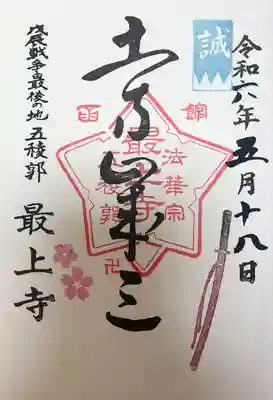 誠
令和六年五月十八日
土方歳三
函館
法華宗
最上寺
五稜郭
卍
戊辰戦争最後の地 五稜郭
最上寺